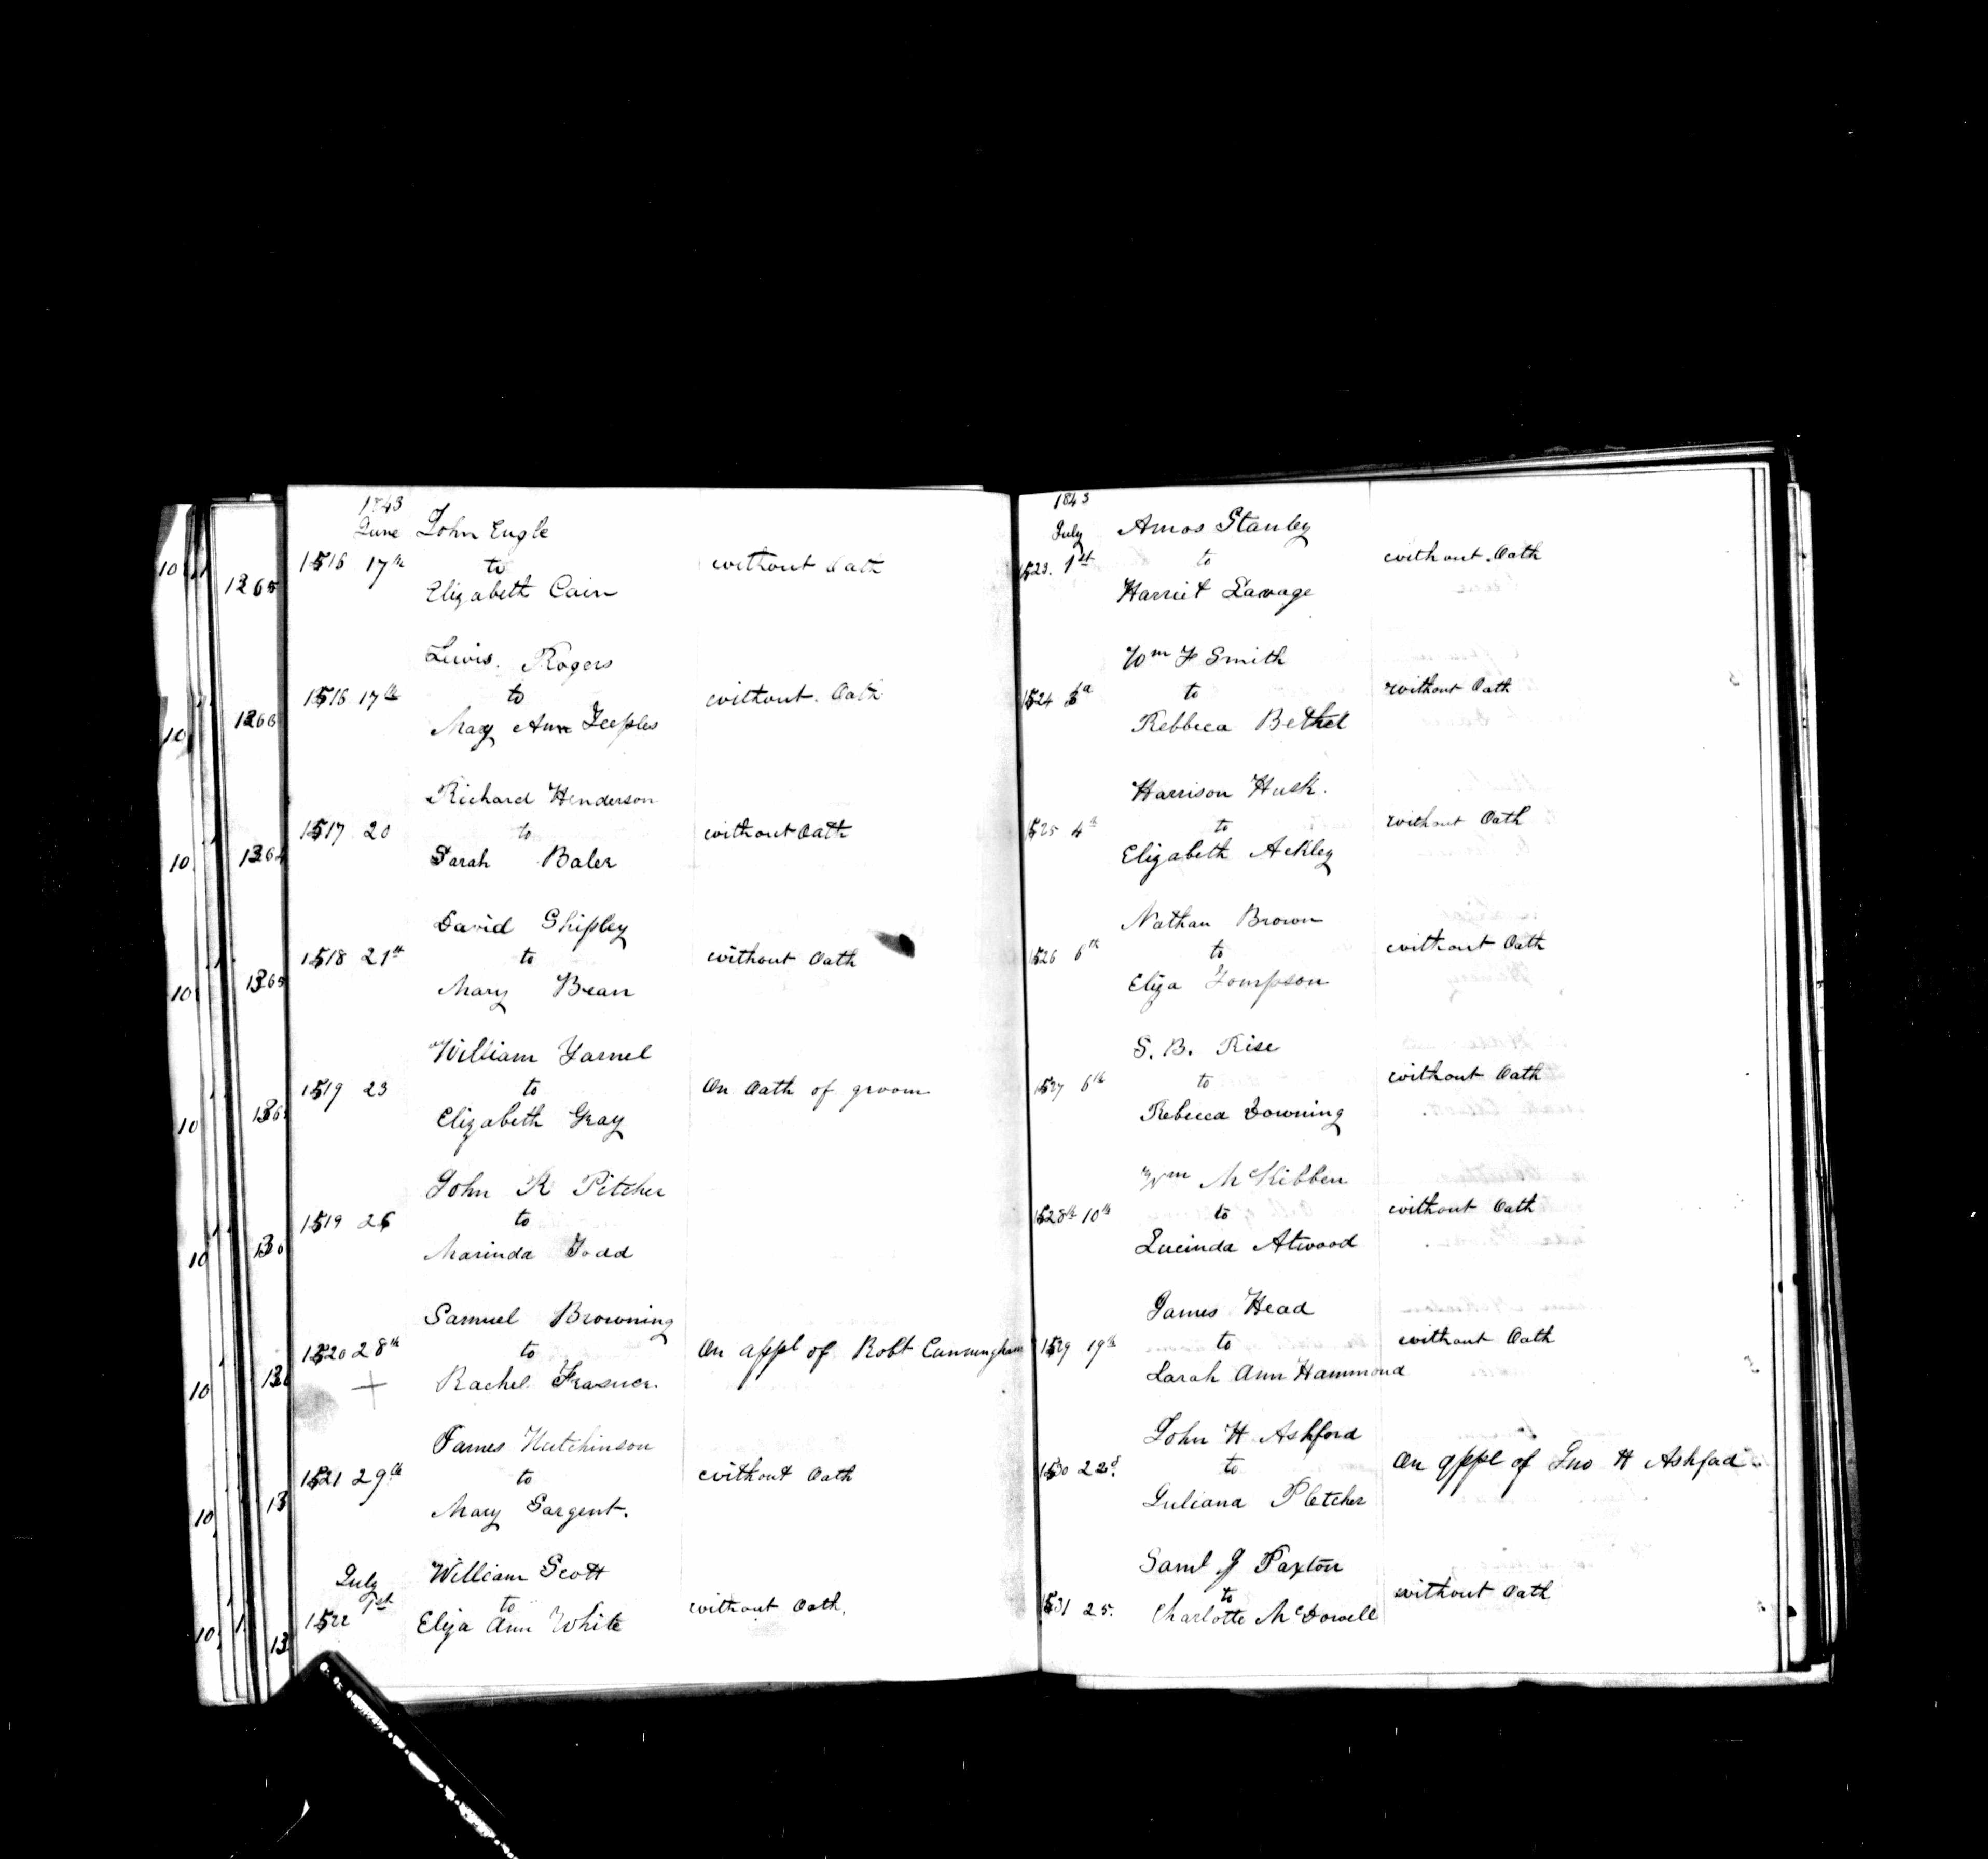 1843
June John Eugle
1516 17th to without Oath
Elizabeth Cain
Lewis. Rogers
1516 17th to without. Oath
Mary Ann Teeples
Richard Henderson
1517 20 to without Oath
Sarah Baler
David Shipley
1518 21st to without Oath
Mary Bean
William Yarnel
1519 23 to On Oath of groom
Elizabeth Gray
John R Pitcher
1519 26 to
Marinda Todd
Samuel Browning
1520 28th to On appl of Robt Cunningham
+ Rachel
James Hutchinson
1521 29th to without Oath
Mary Sargent.
July William Scott
1522 1st to without Oath.
Eliza Ann White
1843
July Amos Stanley
1523. 1st to without Oath
Harriet Savage
Wm F Smith
1524 to without Oath
Rebbeca Bethel
Harrison Husk.
1525 4th to without Oath
Elizabeth Ackley
Nathan Brown
1526 6th to without Oath
Eliza Tompson
S. B. Rise
1527 6th to without Oath
Rebecca Downing
Wm McKibben
1528th 10th to without Oath
Lucinda Atwood
James Head
1529 19th to without Oath
Sarah Ann Hammond
John H Ashford
1530 22d. to On appl of Jno H Ashfad
Juliana Pletcher
Saml J Paxton
1531 25. to without Oath
Charlotte McDowell
10
1265
10
1266
10
10
10
10
10
10
10